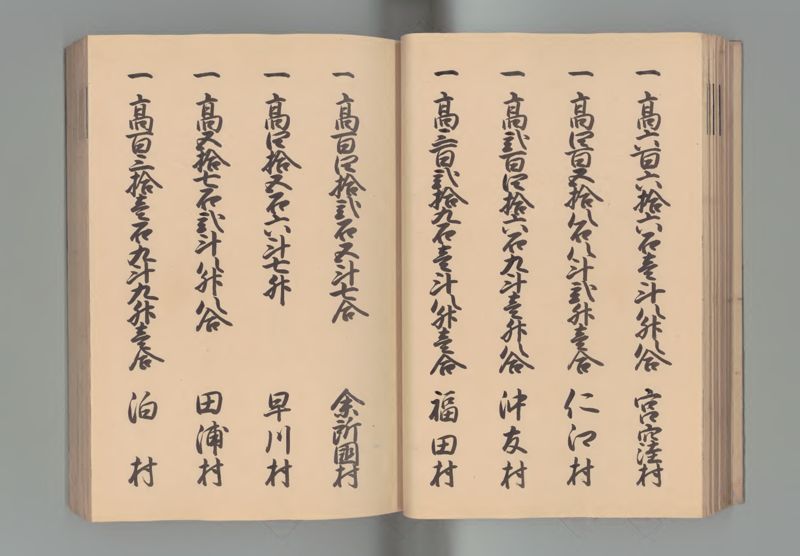 一 高六百六拾六石壱斗八升八合 宮窪村
一 高四百五拾八石八斗弐升壱合 仁江村
一 高弐百四拾六石九斗壱升八合 沖友村
一 高三百弐拾九石壱斗八升壱合 福田村
一 高百四拾弐石五斗七合 余所国村
一 高四拾五石六斗七升 早川村
一 高五拾七石弐斗八升八合 田浦村
一 高百三拾壱石九斗九升壱合 泊村